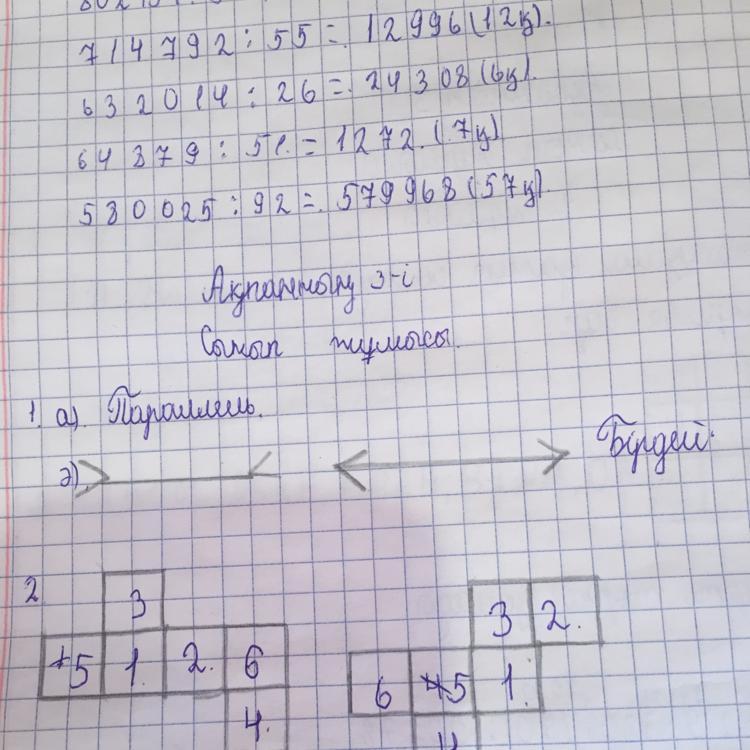 714792 : 55 = 12996 (12қ).
632014 : 26 = 24308 (6қ).
64879 : 51 = 1272. (7қ)
580025 : 92 = 579968 (57қ).
Ақпанның 3-і
Сынып жұмысы.
1. а). Параллель.
ә). Бірдей.
2 3 3 2.
5 1. 2. 6 6 5 1.
4. 4